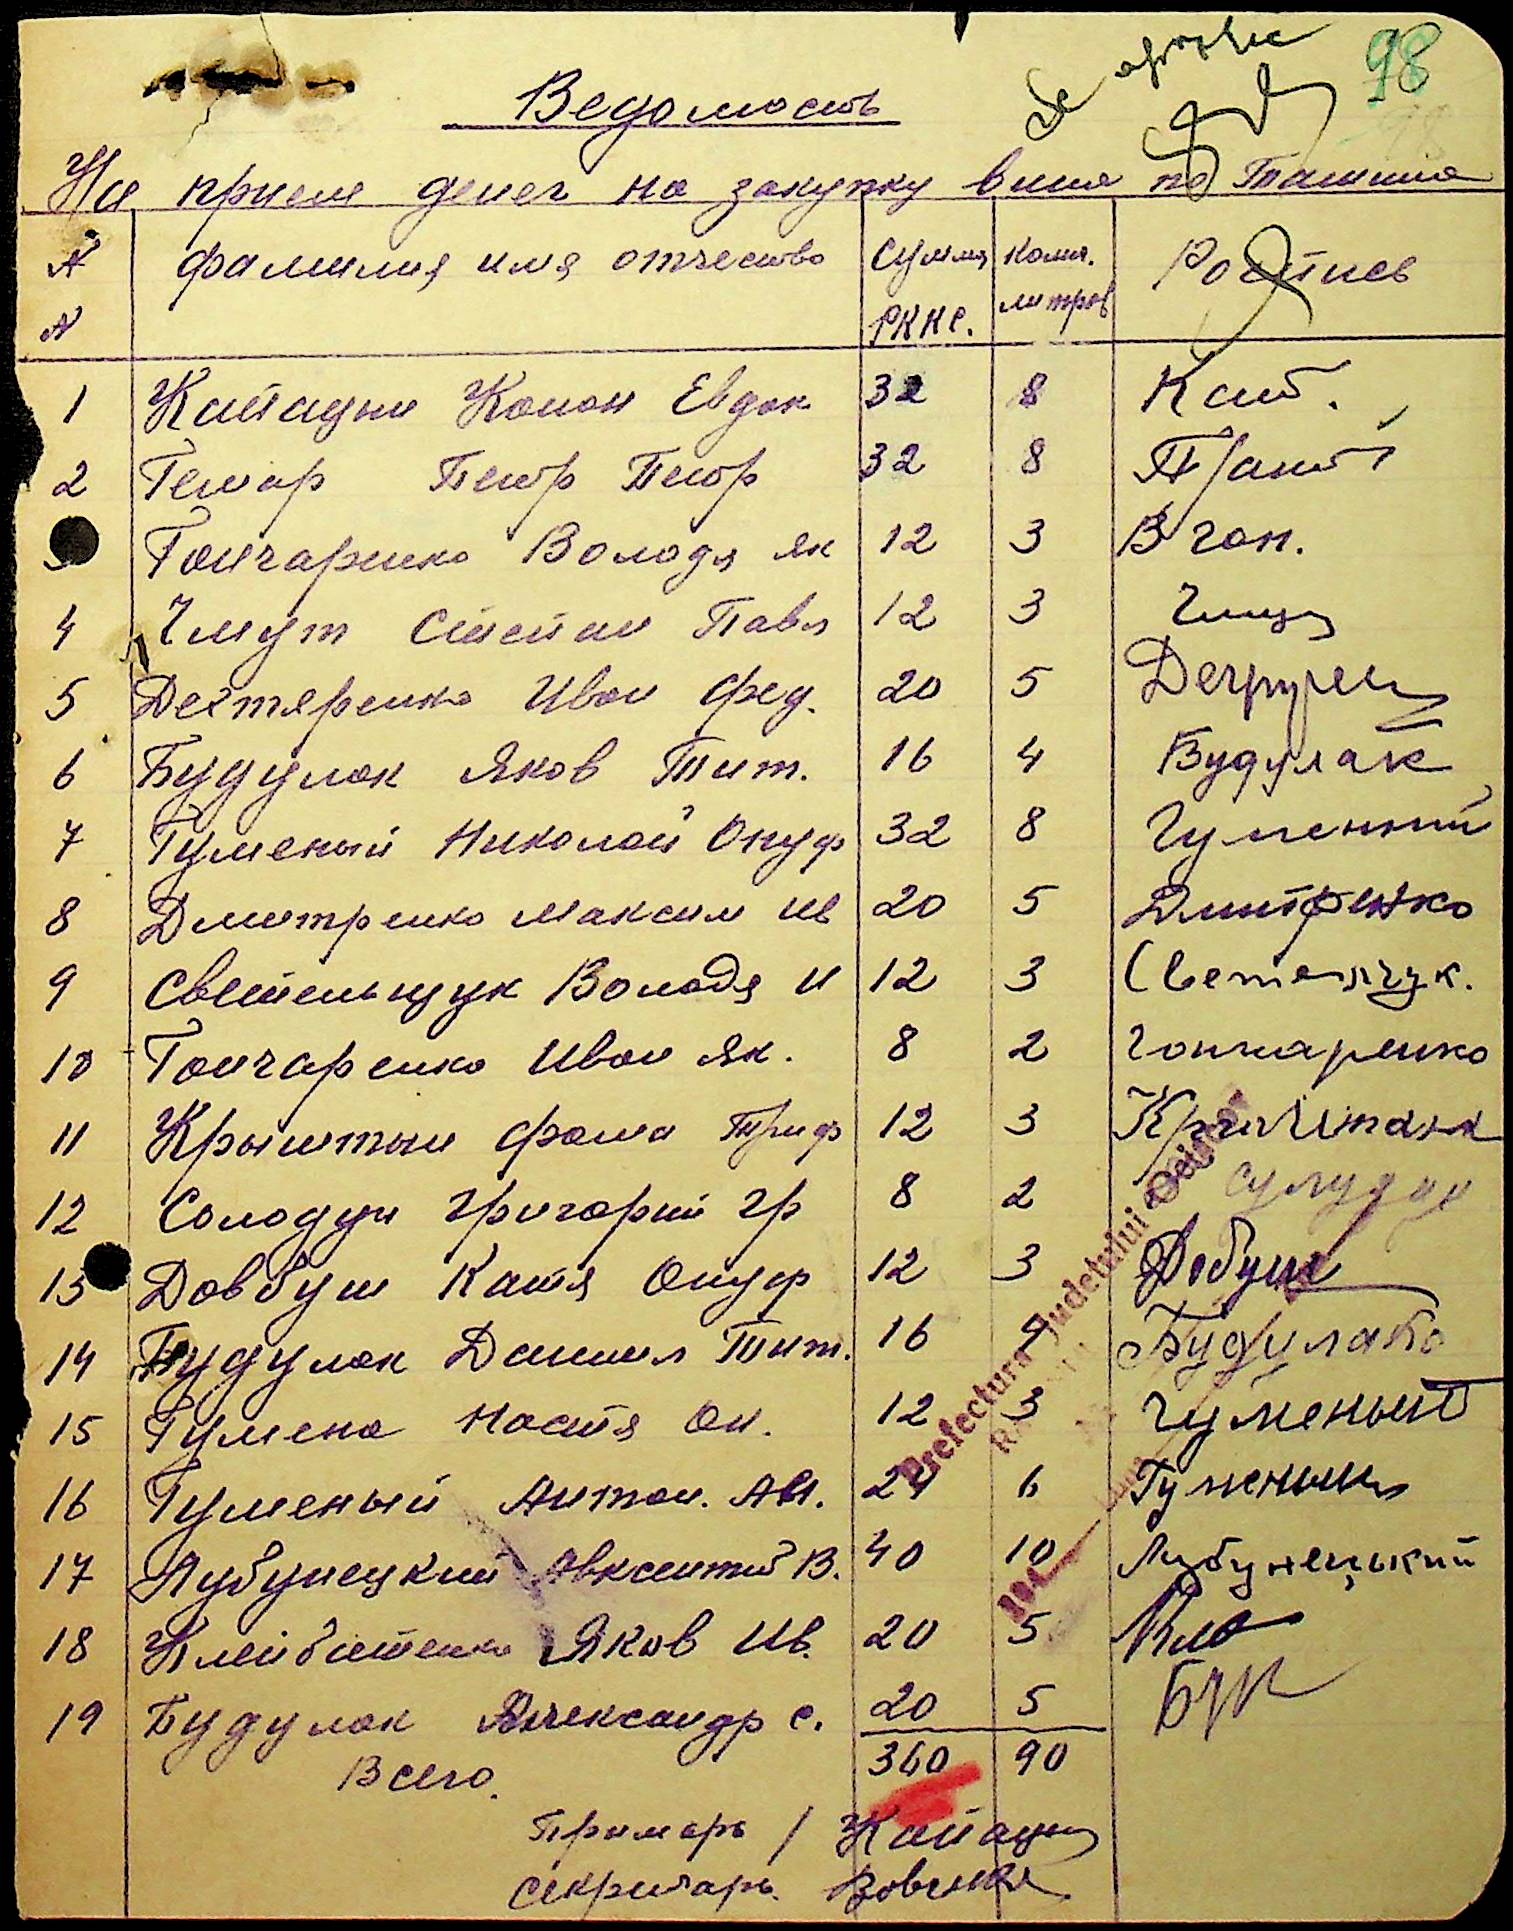 98
Ведомость
На прием денег на закупку вина по Ташина
N фамилия имя отчество Сумма колич. Роспись
N РККС. литров
1 Катации Конон Евдок 32 8 Кат.
2 Гемар Петр Петр 32 8
3 Гончаренко Володя Як 12 3 В Гон.
4 Чмут Степан Павл 12 3
5 Дехтяренко Иван Фед. 20 5
6 Будулак Яков Тит. 16 4 Будулак
7 Гуменый Николай Онуф 32 8 Гуменный
8 Дмитренко Максим Ив 20 5 Дмитренко
9 Светельщук Володя И 12 3 Светельчук.
10 Гончаренко Иван Як. 8 2 Гончаренко
11 Крыштын Фома Триф 12 3
12 Солодун Григорий Гр 8 2
13 Довбуш Катя Онуф 12 3 Добуш
14 Будулак Даниил Тит. 16 4
15 Гумена Настя Он. 12 3 Гуменый
16 Гуменый Антон. Ав. 24 6 Гуменый
17 Лубунецкий Авксентий В. 40 10 Лубунецький
18 Яков Ив. 20 5
19 Будулак Александр С. 20 5
Всего. 360 90
Примарь /
Секретарь.
Prefectura Judetului